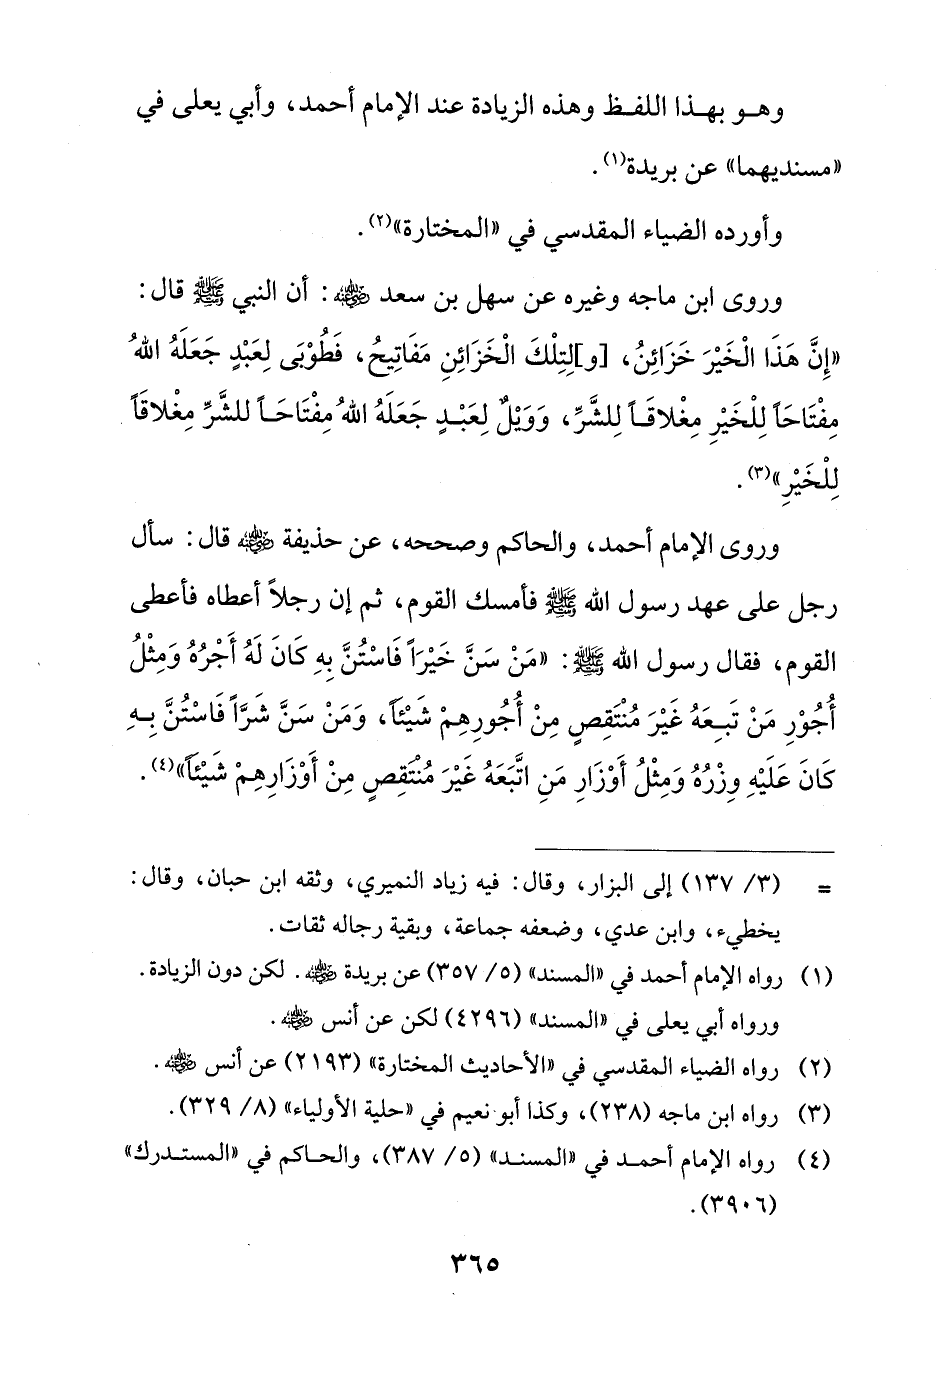 وهو بهذا اللفظ وهذه الزيادة عند الإمام أحمد، وأبي يعلى في
«مسنديهما» عن بريدة(١).
وأورده الضياء المقدسي في «المختارة»(٢).
وروى ابن ماجه وغيره عن سهل بن سعد رضي الله عنه: أن النبي ﷺ قال:
«إِنَّ هَذَا الْخَيْرَ خَزَائِنُ، [و]لِتِلْكَ الْخَزَائِنِ مَفَاتِيحُ، فَطُوْبَى لِعَبْدٍ جَعَلَهُ اللهُ
مِفْتَاحَاً لِلْخَيْرِ مِغْلاقَاً لِلشَّرِّ، وَوَيْلٌ لِعَبْدٍ جَعَلَهُ اللهُ مِفْتَاحَاً للشَّرِّ مِغْلاقَاً
لِلْخَيْرِ»(٣).
وروى الإمام أحمد، والحاكم وصححه، عن حذيفة رضي الله عنه قال: سأل
رجل على عهد رسول الله ﷺ فأمسك القوم، ثم إن رجلاً أعطاه فأعطى
القوم، فقال رسول الله ﷺ: «مَنْ سَنَّ خَيْرَاً فَاسْتُنَّ بِهِ كَانَ لَهُ أَجْرُهُ وَمِثْلُ
أُجُوْرِ مَنْ تَبِعَهُ غَيْرَ مُنْتَقِصٍ مِنْ أُجُورِهِمْ شَيْئَاً، وَمَنْ سَنَّ شَرَّاً فَاسْتُنَّ بِهِ
كَانَ عَلَيْهِ وِزْرُهُ وَمِثْلُ أَوْزَارِ مَنِ اتَّبَعَهُ غَيْرَ مُنْتَقِصٍ مِنْ أَوْزَارِهِمْ شَيْئَاً»(٤).
= (٣/ ١٣٧) إلى البزار، وقال: فيه زياد النميري، وثقه ابن حبان، وقال:
يخطيء، وابن عدي، وضعفه جماعة، وبقية رجاله ثقات.
(١) رواه الإمام أحمد في «المسند» (٥/ ٣٥٧) عن بريدة رضي الله عنه. لكن دون الزيادة.
ورواه أبي يعلى في «المسند» (٤٢٩٦) لكن عن أنس رضي الله عنه.
(٢) رواه الضياء المقدسي في «الأحاديث المختارة» (٢١٩٣) عن أنس رضي الله عنه.
(٣) رواه ابن ماجه (٢٣٨)، وكذا أبو نعيم في «حلية الأولياء» (٨/ ٣٢٩).
(٤) رواه الإمام أحمد في «المسند» (٥/ ٣٨٧)، والحاكم في «المستدرك»
(٣٩٠٦).
٣٦٥